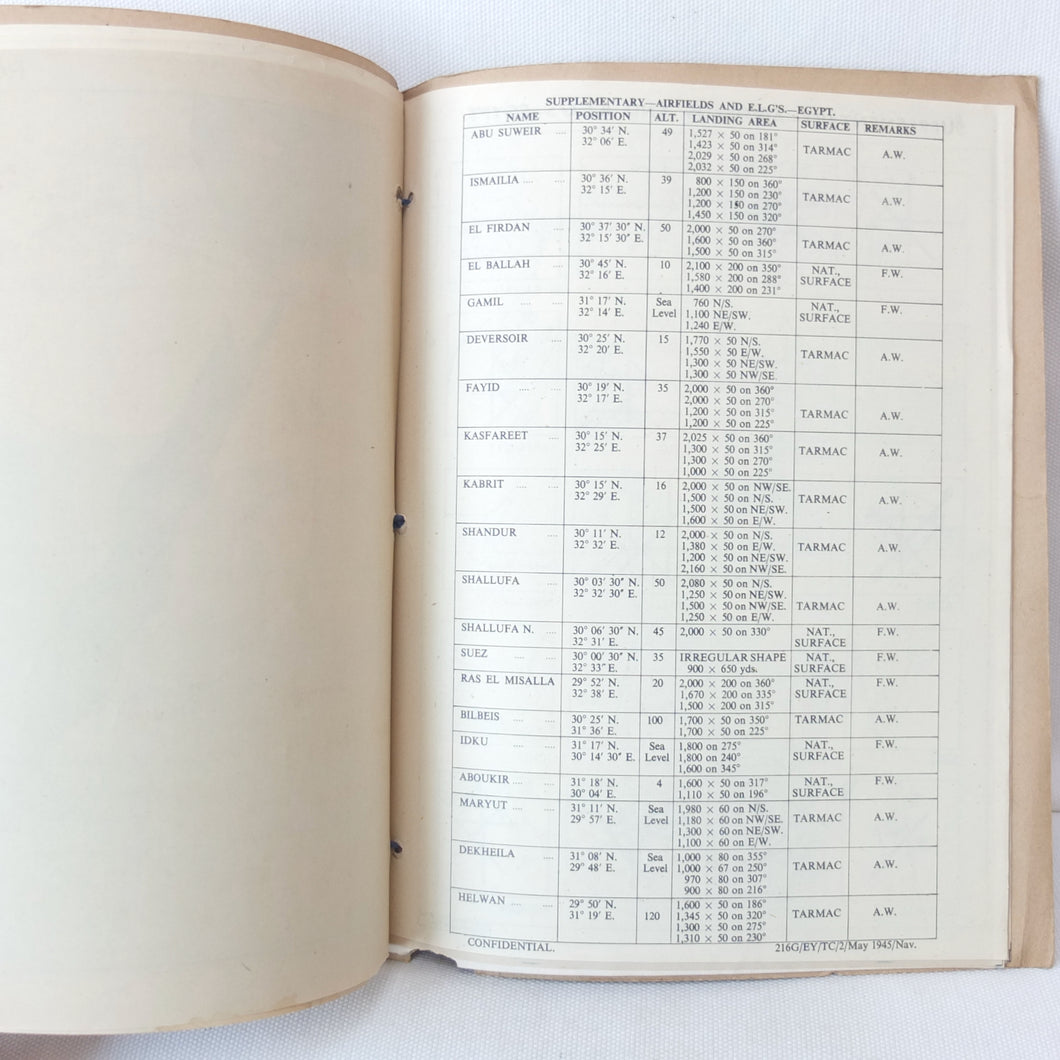 SUPPLEMENTARY—AIRFIELDS AND E.L.G'S.—EGYPT.
NAME POSITION ALT. LANDING AREA SURFACE REMARKS
ABU SUWEIR .... 30° 34′ N. 49 1,527 × 50 on 181°
32° 06′ E. 1,423 × 50 on 314°
2,029 × 50 on 268° TARMAC A.W.
2,032 × 50 on 225°
ISMAILIA .... .... 30° 36′ N. 39 800 × 150 on 360°
32° 15′ E. 1,200 × 150 on 230° TARMAC A.W.
1,200 × 150 on 270°
1,450 × 150 on 320°
EL FIRDAN .... 30° 37′ 30″ N. 50 2,000 × 50 on 270°
32° 15′ 30″ E. 1,600 × 50 on 360° TARMAC A.W.
1,500 × 50 on 315°
EL BALLAH .... 30° 45′ N. 10 2,100 × 200 on 350° NAT., F.W.
32° 16′ E. 1,580 × 200 on 288° SURFACE
1,400 × 200 on 231°
GAMIL .... .... 31° 17′ N. Sea 760 N/S. NAT., F.W.
32° 14′ E. Level 1,100 NE/SW. SURFACE
1,240 E/W.
DEVERSOIR .... 30° 25′ N. 15 1,770 × 50 N/S.
32° 20′ E. 1,550 × 50 E/W. TARMAC A.W.
1,300 × 50 NE/SW.
1,300 × 50 NW/SE.
FAYID .... .... 30° 19′ N. 35 2,000 × 50 on 360°
32° 17′ E. 2,000 × 50 on 270°
1,200 × 50 on 315° TARMAC A.W.
1,200 × 50 on 225°
KASFAREET .... 30° 15′ N. 37 2,025 × 50 on 360°
32° 25′ E. 1,300 × 50 on 315° TARMAC A.W.
1,300 × 50 on 270°
1,000 × 50 on 225°
KABRIT .... .... 30° 15′ N. 16 2,000 × 50 on NW/SE.
32° 29′ E. 1,500 × 50 on N/S. TARMAC A.W.
1,500 × 50 on NE/SW.
1,600 × 50 on E/W.
SHANDUR .... 30° 11′ N. 12 2,000 × 50 on N/S.
32° 32′ E. 1,380 × 50 on E/W. TARMAC A.W.
1,200 × 50 on NE/SW.
2,160 × 50 on NW/SE.
SHALLUFA .... 30° 03′ 30″ N. 50 2,080 × 50 on N/S.
32° 32′ 30″ E. 1,250 × 50 on NE/SW.
1,500 × 50 on NW/SE. TARMAC A.W.
1,250 × 50 on E/W.
SHALLUFA N. .... 30° 06′ 30″ N. 45 2,000 × 50 on 330° NAT., F.W.
32° 31′ E. SURFACE
SUEZ .... .... 30° 00′ 30″ N. 35 IRREGULAR SHAPE NAT., F.W.
32° 33″ E. 900 × 650 yds. SURFACE
RAS EL MISALLA 29° 52′ N. 20 2,000 × 200 on 360° NAT., F.W.
32° 38′ E. 1,670 × 200 on 335° SURFACE
1,500 × 200 on 315°
BILBEIS .... .... 30° 25′ N. 100 1,700 × 50 on 350° TARMAC A.W.
31° 36′ E. 1,700 × 50 on 225°
IDKU .... .... 31° 17′ N. Sea 1,800 on 275° NAT., F.W.
30° 14′ 30″ E. Level 1,800 on 240° SURFACE
1,600 on 345°
ABOUKIR .... .... 31° 18′ N. 4 1,600 × 50 on 317° NAT., F.W.
30° 04′ E. 1,110 × 50 on 196° SURFACE
MARYUT .... .... 31° 11′ N. Sea 1,980 × 60 on N/S.
29° 57′ E. Level 1,180 × 60 on NW/SE. TARMAC A.W.
1,300 × 60 on NE/SW.
1,100 × 60 on E/W.
DEKHEILA .... 31° 08′ N. Sea 1,000 × 80 on 355°
29° 48′ E. Level 1,000 × 67 on 250° TARMAC A.W.
970 × 80 on 307°
900 × 80 on 216°
HELWAN .... .... 29° 50′ N. 1,600 × 50 on 186°
31° 19′ E. 120 1,345 × 50 on 320° TARMAC A.W.
1,300 × 50 on 275°
1,310 × 50 on 230°
CONFIDENTIAL. 216G/EY/TC/2/May 1945/Nav.